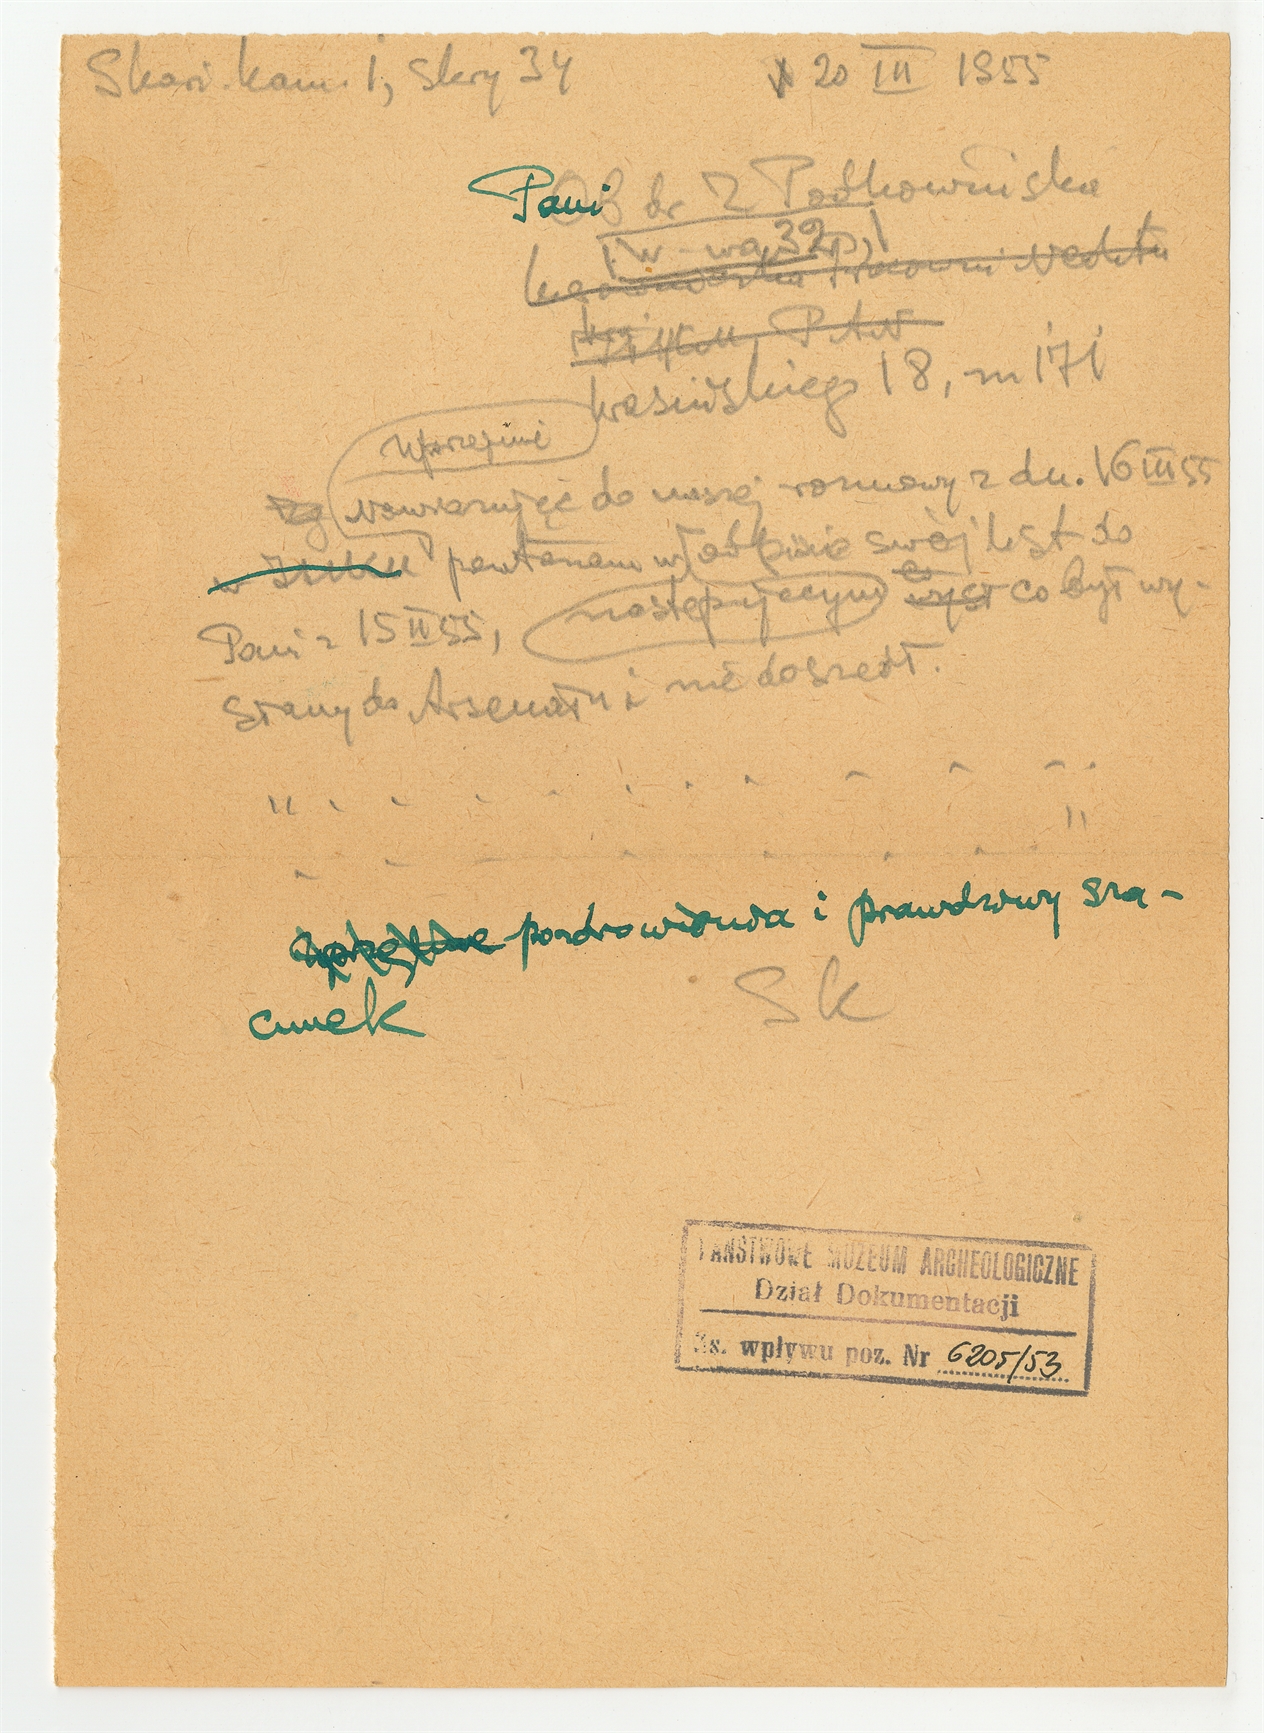 Skarż. Kam. 1, Skry 34 20 III 1955
Pani Ob dr Z Podkowińska
W-wa 32 p.
Kierowniczka Pracowni Neolitu
PAN
Krasińskiego 18, m 171
Uprzejmie
Nawiązując do naszej rozmowy z dn. 16 III 55
powtarzam swój list do
Pani z 15 II 55, następujący co był wy-
słany do Arsenału i nie doszedł.
" . . . . . . . . . . "
pozdrowienia i prawdziwy sza-
cunek
SK
PAŃSTWOWE MUZEUM ARCHEOLOGICZNE
Dział Dokumentacji
Ks. wpływu poz. Nr 6205/53